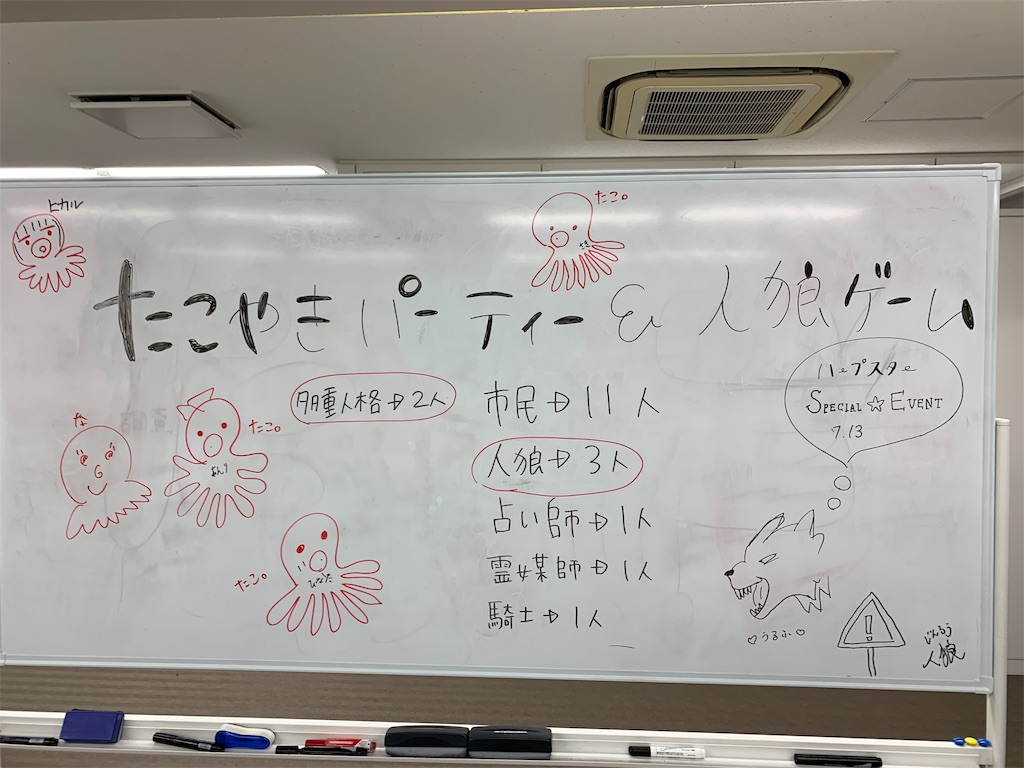 ヒカル
たこ。
たこやきパーティー & 人狼ゲーム
ハ。プスター
SPECIAL☆EVENT
7.13
多重人格→2人
市民→11人
人狼→3人
占い師→1人
霊媒師→1人
騎士→1人
な
たこ。
あんり
たこ。
ひなた
♡うるふ♡
!
じんろう
人狼